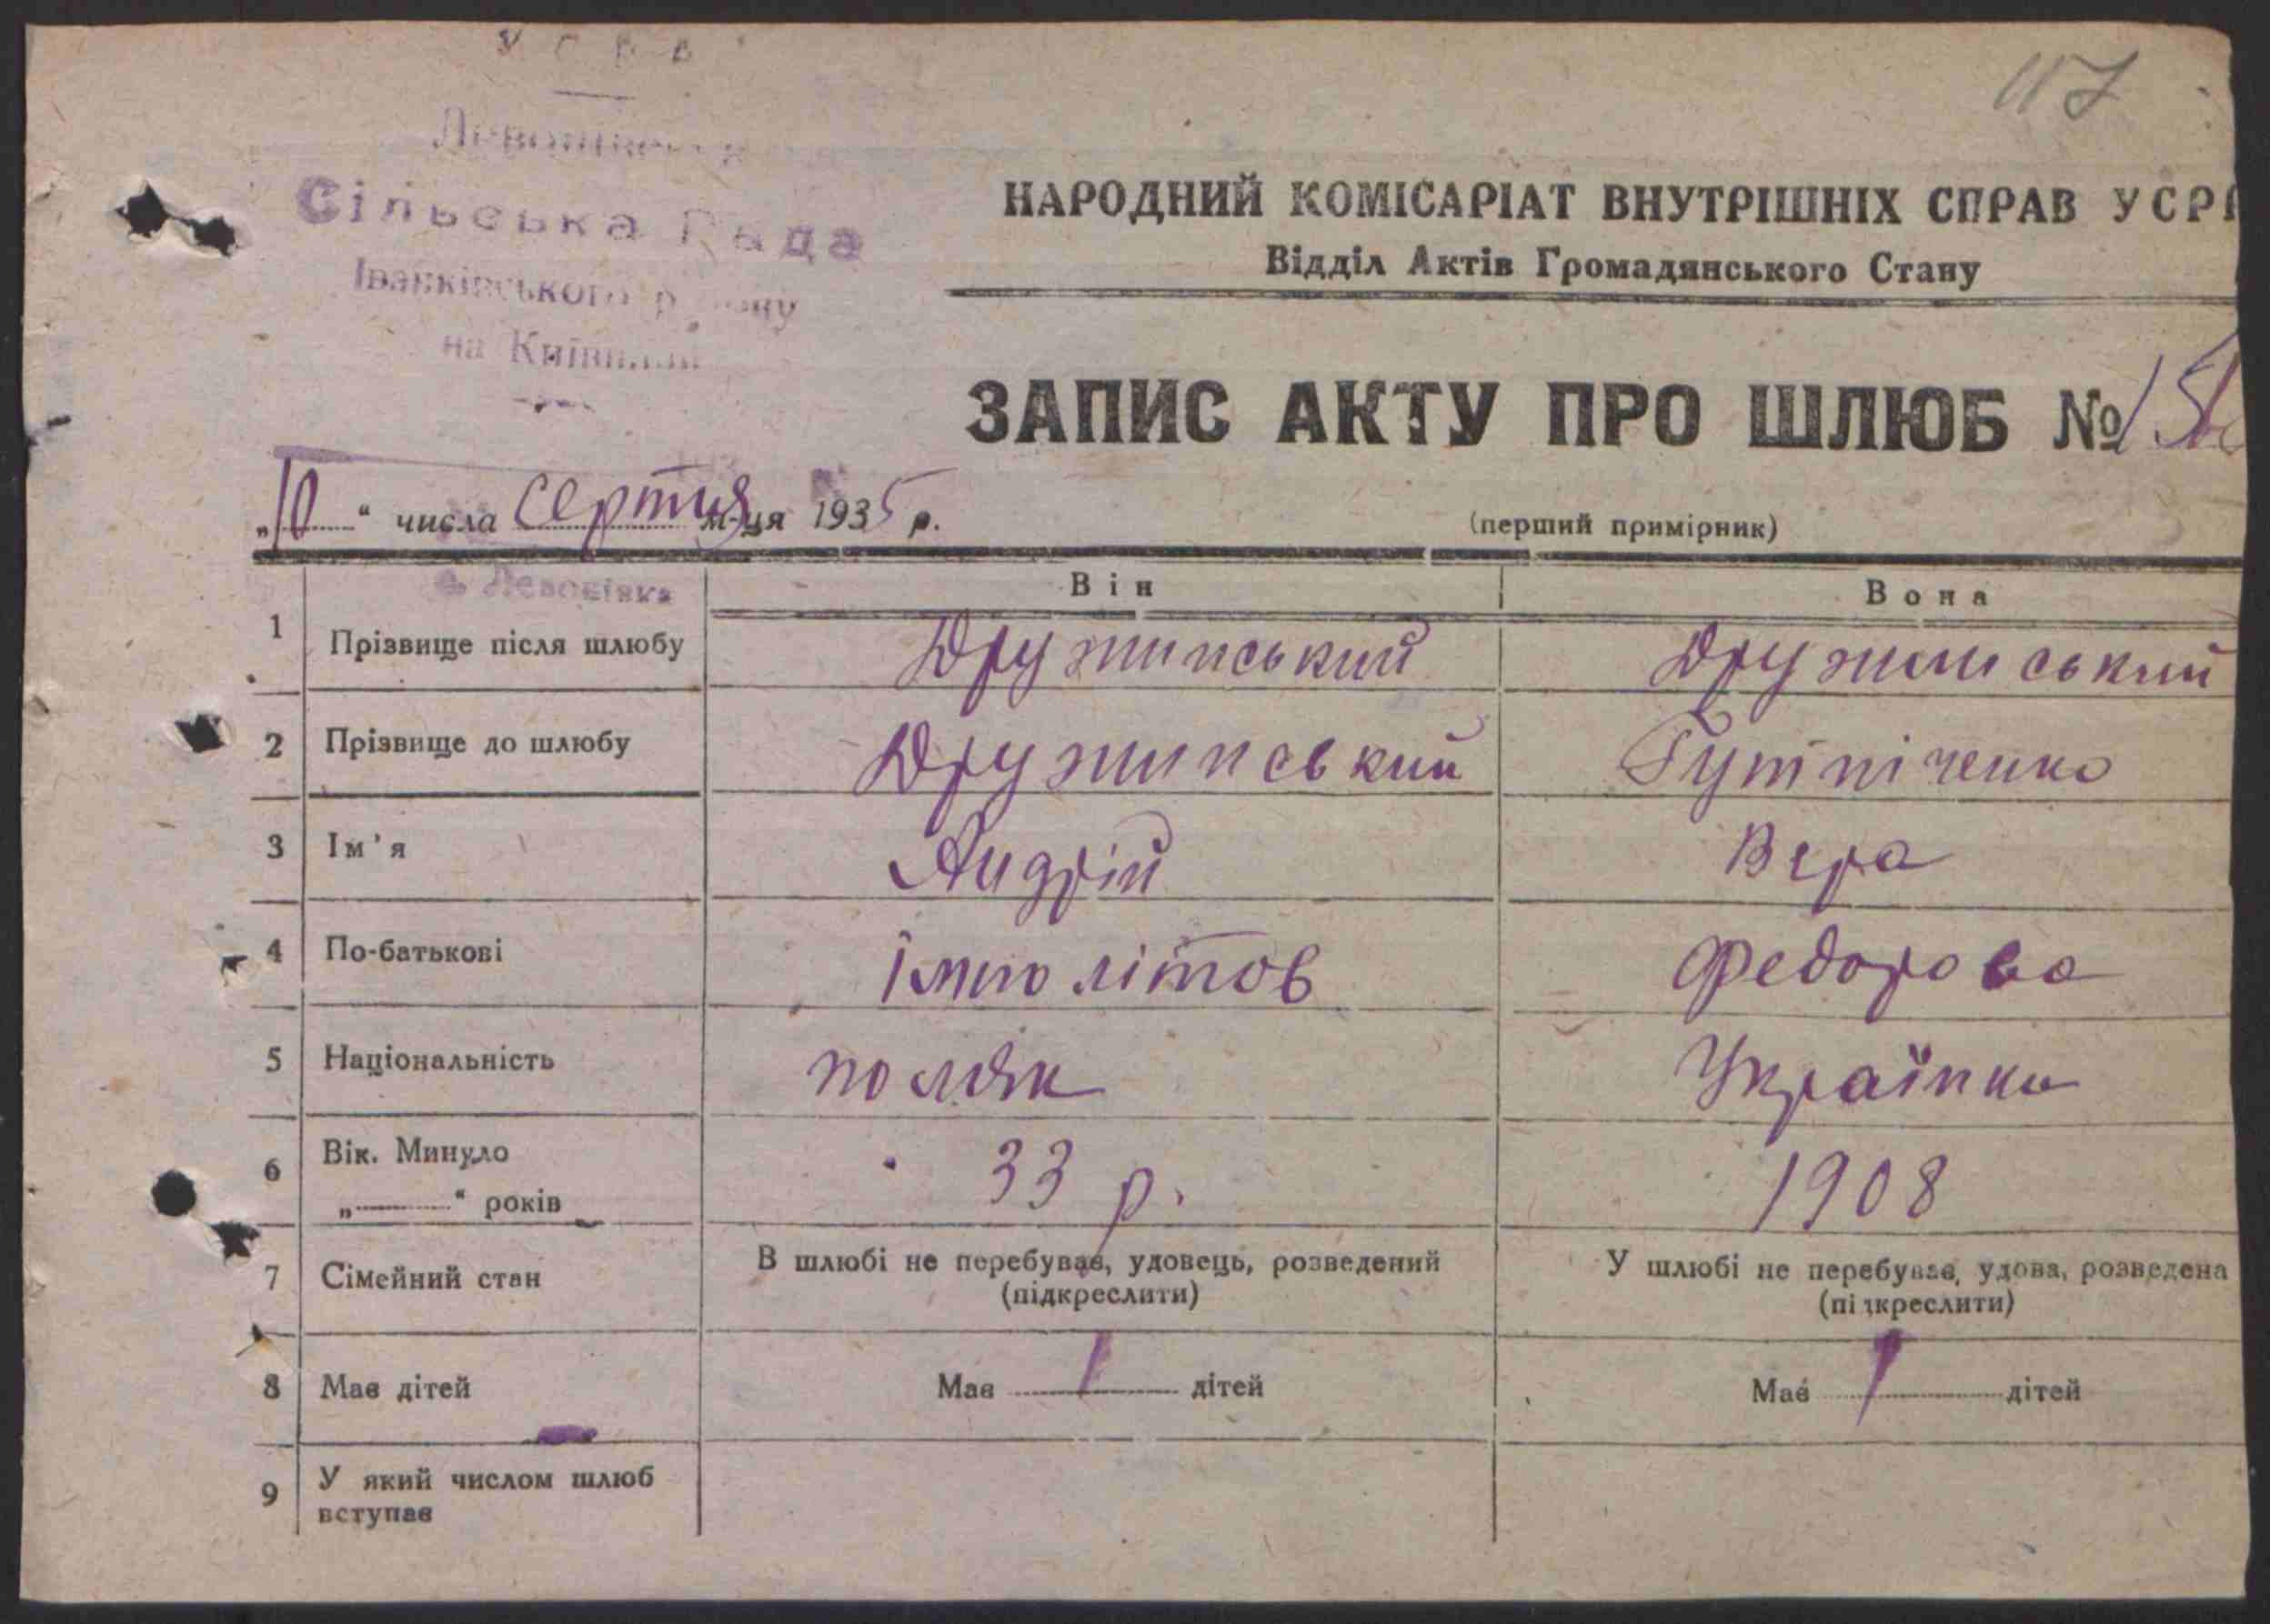 У С Р Р
117
Сільська Рада
Іванківського району
на Київщині
НАРОДНИЙ КОМІСАРІАТ ВНУТРІШНІХ СПРАВ УСРР
Відділ Актів Громадянського Стану
ЗАПИС АКТУ ПРО ШЛЮБ №
„10“ числа Серпня м-ця 1935 р.
(перший примірник)
Він Вона
1 Прізвище після шлюбу Дружинський Дружинський
2 Прізвище до шлюбу Дружинський
3 Ім'я Андрій Вера
4 По-батькові Імполітов Федорова
5 Національність поляк Українка
6 Вік. Минуло „ “ років 33 р. 1908
7 Сімейний стан В шлюбі не перебував, удовець, розведений (підкреслити) У шлюбі не перебував, удова, розведена (підкреслити)
8 Має дітей Має 1 дітей Має 1 дітей
9 У який числом шлюб вступає